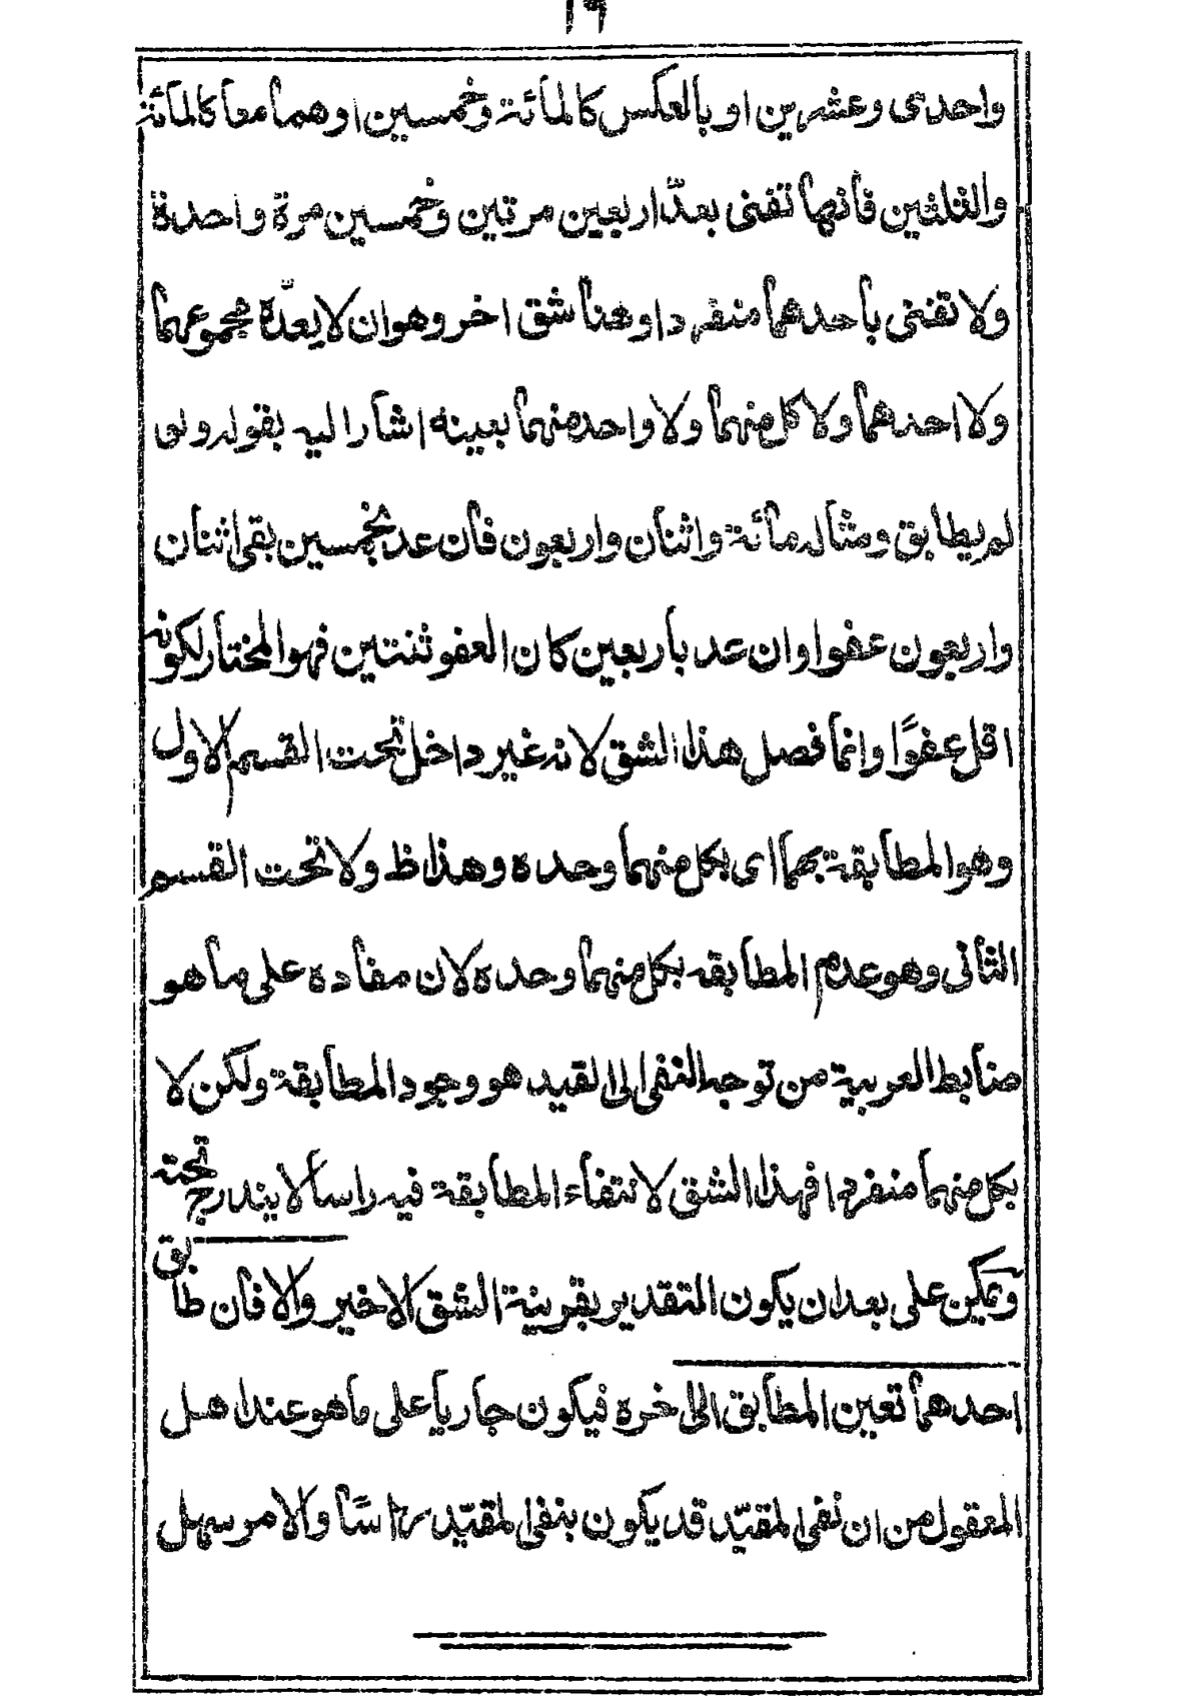 ١٩
واحدى وعشرين او بالعكس كالمائة وخمسين او هما معا كالمائة
والثلثين فانها تفنى بعدّ اربعين مرتين وخمسين مرة واحدة
ولا تفنى باحدهما منفردا وهنا شق اخر وهو ان لا يعدّه مجموعهما
ولا احدهما ولا كل منهما ولا واحد منهما بعينه اشار اليه بقوله ولى
لم يطابق ومثاله مائة واثنان واربعون فان عد بخمسين بقى اثنان
واربعون عفوا وان عد باربعين كان العفو ثنتين فهو المختار لكونه
اقل عفوًا وانما فصل هذا الشق لانه غير داخل تحت القسم الاول
وهو المطابقة بهما اى بكل منهما وحده وهذا ظ ولا تحت القسم
الثانى وهو عدم المطابقه بكل منهما وحده لان مفاده على ما هو
ضابط العربية من توجه النفى الى القيد هو وجود المطابقة ولكن لا
بكل منهما منفردا فهذا الشق لانتفاء المطابقة فيه راسا لا يندرج تحته
ويمكن على بعد ان يكون التقدير بقرينة الشق الاخير والا فان طابق
احدهما تعين المطابق الى اخره فيكون جاريا على ما هو عند اهل
المعقول من ان نفى المقيّد قد يكون بنفى المقيّد راسًا والامر سهل